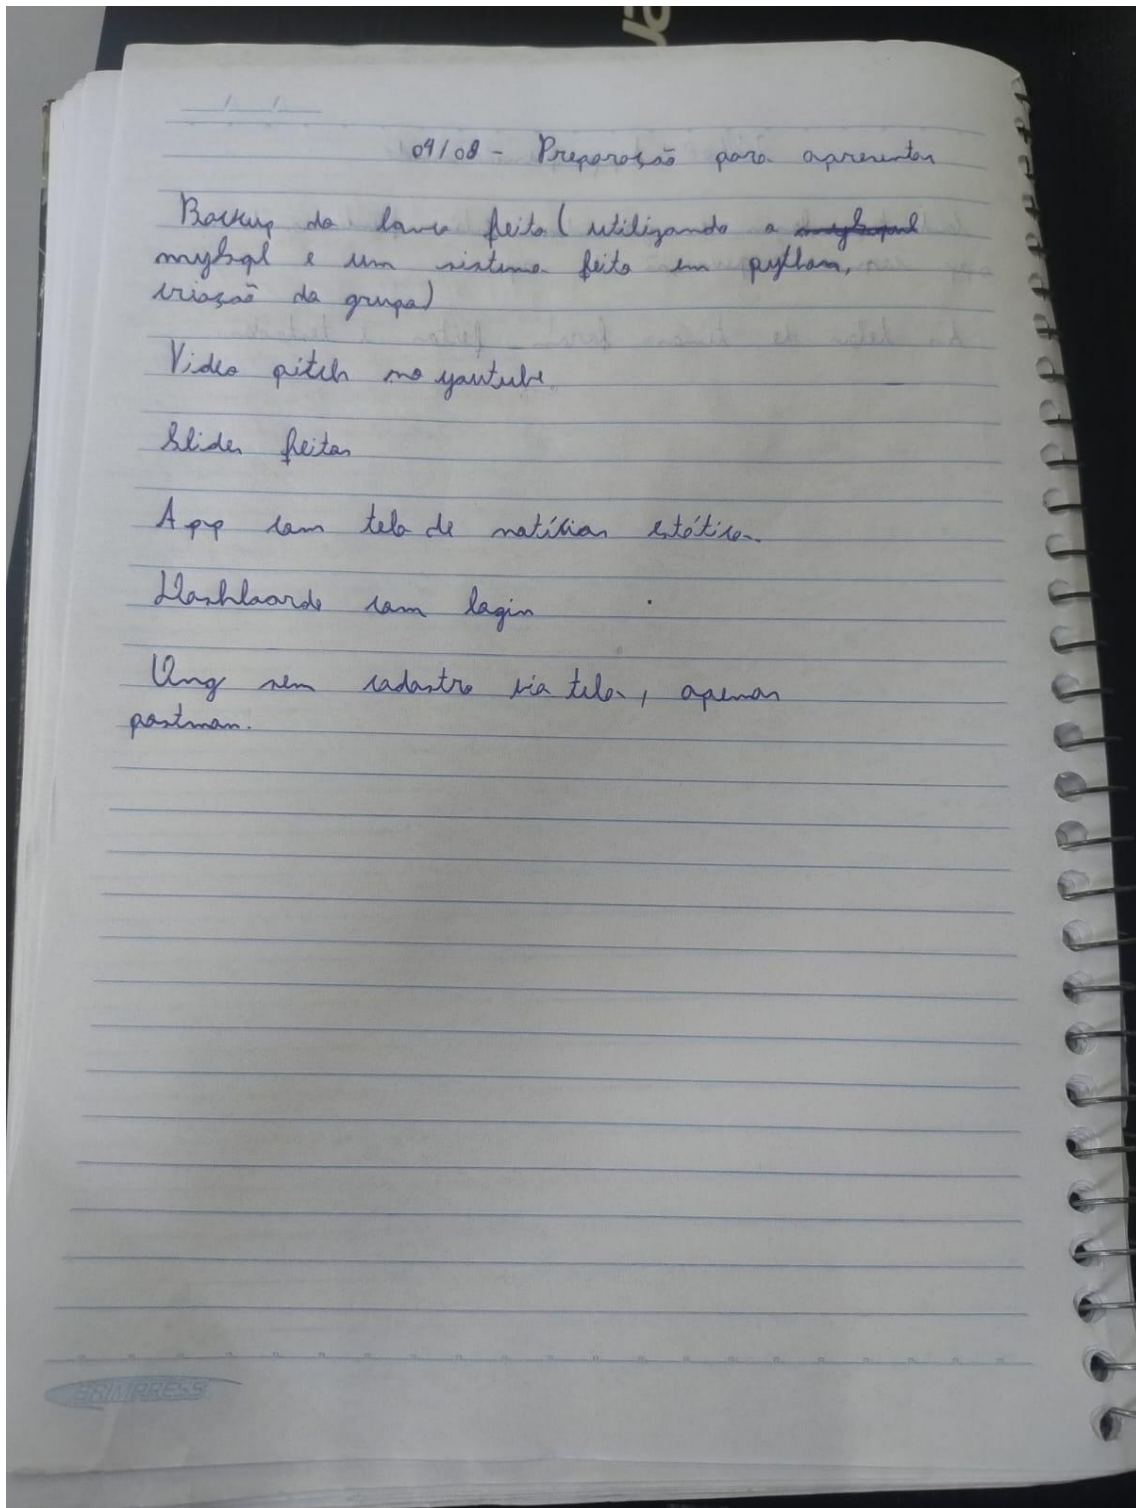 04/08 - Preparação para apresentar
Backup do banco feito (utilizando o
mysql e um sistema feito em python,
criação do grupo)
Video pitch no youtube.
Slides feitos
App com tela de notícias estática.
Dashboard com login
Ong sem cadastro via tela, apenas
postman.
BRIMPRESS